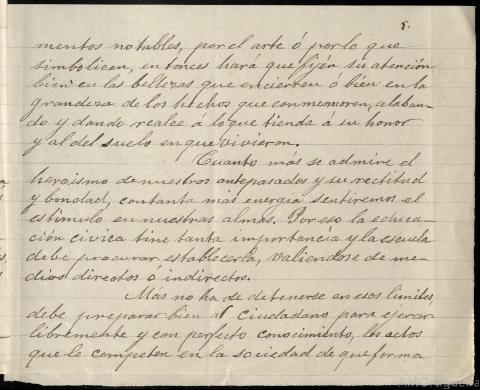 5.
mentos notables, por el arte ó por lo que
simbolicen, entonces hará que fijen su atención
bien en las bellezas que encierren ó bien en la
grandeza de los hechos que conmemoren, alaban-
do y dando realce á lo que tienda á su honor
y al del suelo en que vivieron.
Cuanto más se admire el
heroismo de nuestros antepasados y su rectitud
y bondad, con tanta más energia sentiremos el
estímulo en nuestras almas. Por eso la educa-
ción civica tine tanta importancia y la escuela
debe procurar establecerla, valiendose de me-
dios directos ó indirectos.
Más no ha de detenerse en esos limites,
debe preparar bien al ciudadano para ejercer
libremente y con perfecto conocimiento, los actos
que le competen en la sociedad de que forma